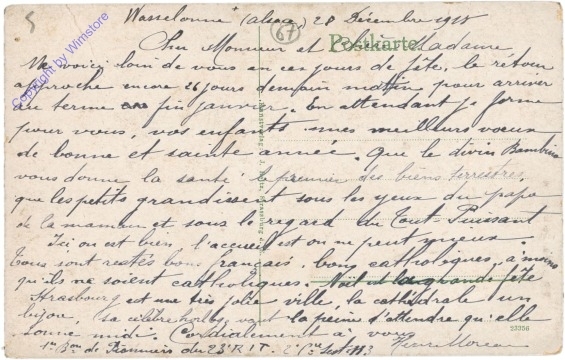 5
Wasselonne (Alsace) 28 Décembre 1918
67
Cher Monsieur et chère Madame
Postkarte
Copyright by Wimstore
Me voici loin de vous en ces jours de fête, le retour
approche encore 26 jours demain matin pour arriver
au terme fin janvier. En attendant je forme
pour vous, vos enfants mes meilleurs voeux
de bonne et sainte année. Que le divin Bambino
vous donne la santé premier des biens terrestres
que les petits grandissent sous les yeux du papa
de la maman et sous le regard du Tout-Puissant
Ici on est bien, l'accueil est on ne peut mieux.
Tous sont restés bons français, bons catholiques, à moins
qu'ils ne soient catholiques. Noël est la grande fête
Strasbourg est une très jolie ville, la cathédrale un
bijou, sa célèbre horloge vaut la peine d'attendre qu'elle
23356
sonne midi. Cordialement à vous
Henri Moreau
1er Bon de Pionniers du 23e R.I.T. 2e Cie Sect. 113